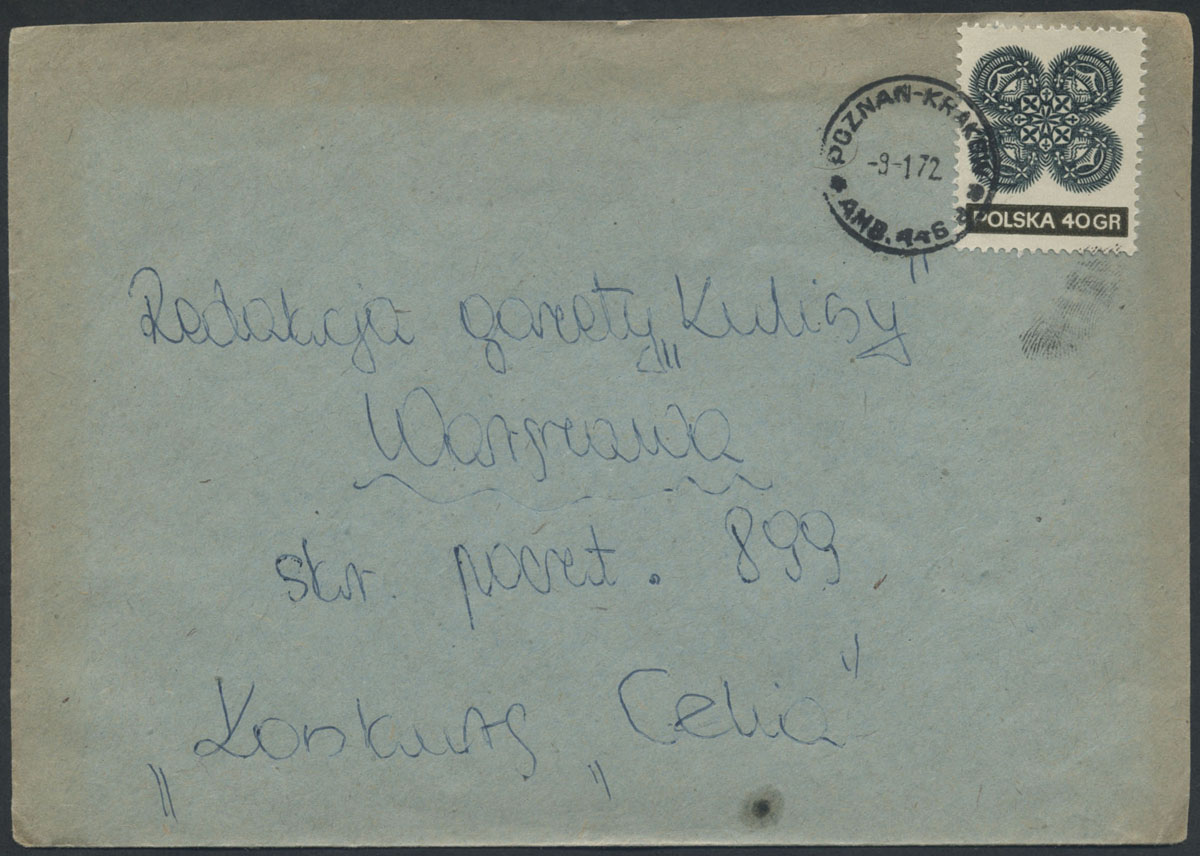 POZNAŃ-KRAKÓW
-9-172
AMB. 446
POLSKA 40 GR
Redakcja gazety „Kulisy"
Warszawa
skr. poczt. 899
„Konkurs „Celia"